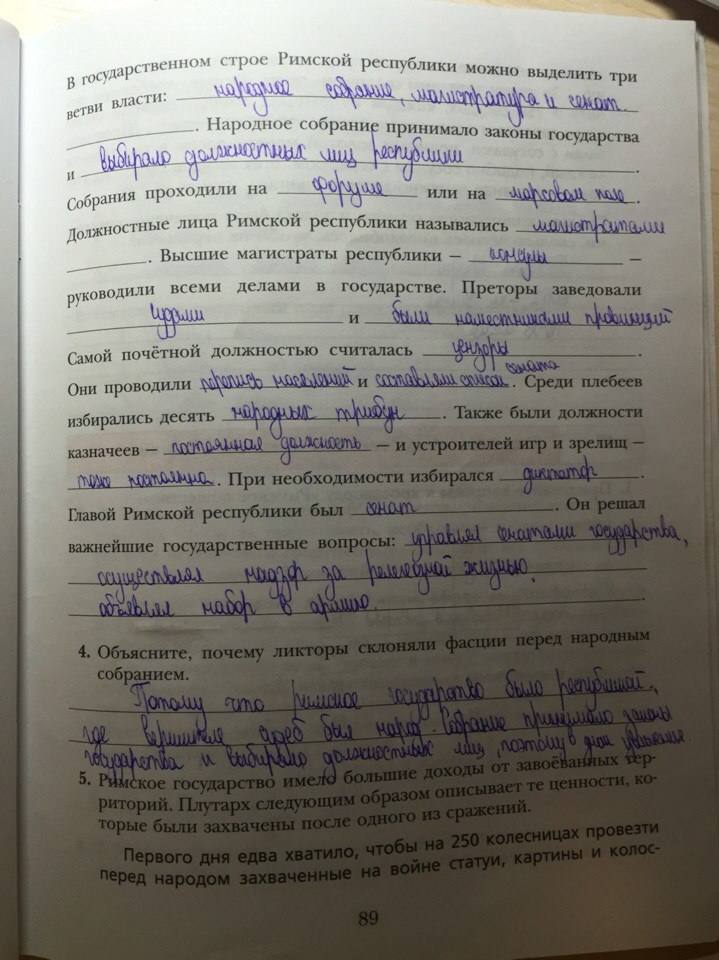 В государственном строе Римской республики можно выделить три
ветви власти: народное собрание, магистратура и сенат.
. Народное собрание принимало законы государства
и выбирало должностных лиц республики.
Собрания проходили на форуме или на марсовом поле.
Должностные лица Римской республики назывались магистратами
. Высшие магистраты республики – консулы –
руководили всеми делами в государстве. Преторы заведовали
судами и были наместниками провинций
Самой почётной должностью считалась цензоры.
сената
Они проводили перепись населения и составляли список. Среди плебеев
избирались десять народных трибун. Также были должности
казначеев – постоянная должность – и устроителей игр и зрелищ –
тоже постоянна. При необходимости избирался диктатор.
Главой Римской республики был сенат. Он решал
важнейшие государственные вопросы: управлял сенатами государства,
осуществлял надзор за религиозной жизнью,
объявлял набор в армию.
4. Объясните, почему ликторы склоняли фасции перед народным
собранием.
Потому что римское государство было республикой,
где вершителем судеб был народ. Собрание принимало законы
государства и выбирало должностных лиц, поэтому в знак уважения.
5. Римское государство имело большие доходы от завоёванных тер-
риторий. Плутарх следующим образом описывает те ценности, ко-
торые были захвачены после одного из сражений.
Первого дня едва хватило, чтобы на 250 колесницах провезти
перед народом захваченные на войне статуи, картины и колос-
89